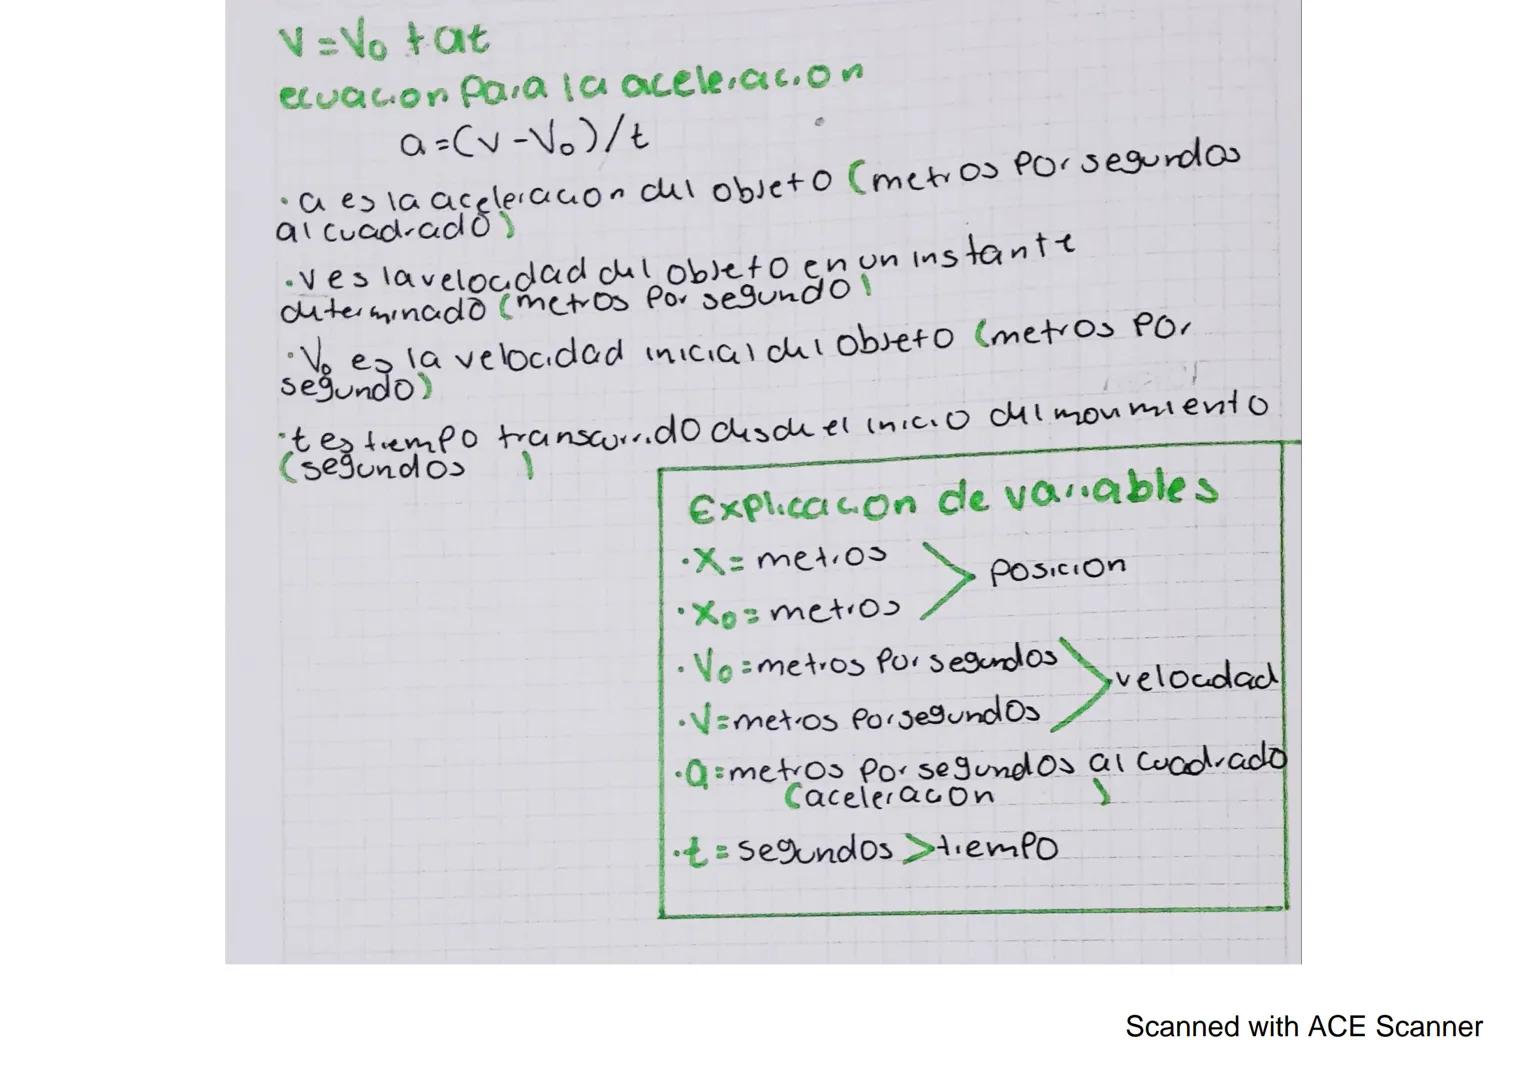 V = V₀ + at
ecuacion para la aceleracion
a = (v - V₀)/t
· a es la aceleracion del objeto (metros por segundos
al cuadrado)
· v es la velocidad del objeto en un instante
determinado (metros por segundo)
· V₀ es la velocidad inicial del objeto (metros por
segundo)
· t es tiempo transcurrido desde el inicio del movimiento
(segundos )
Explicacion de variables
· X = metros
· X₀ = metros > posicion
· V₀ = metros por segundos
· V = metros por segundos > velocidad
· a = metros por segundos al cuadrado
(aceleracion )
· t = segundos > tiempo
Scanned with ACE Scanner